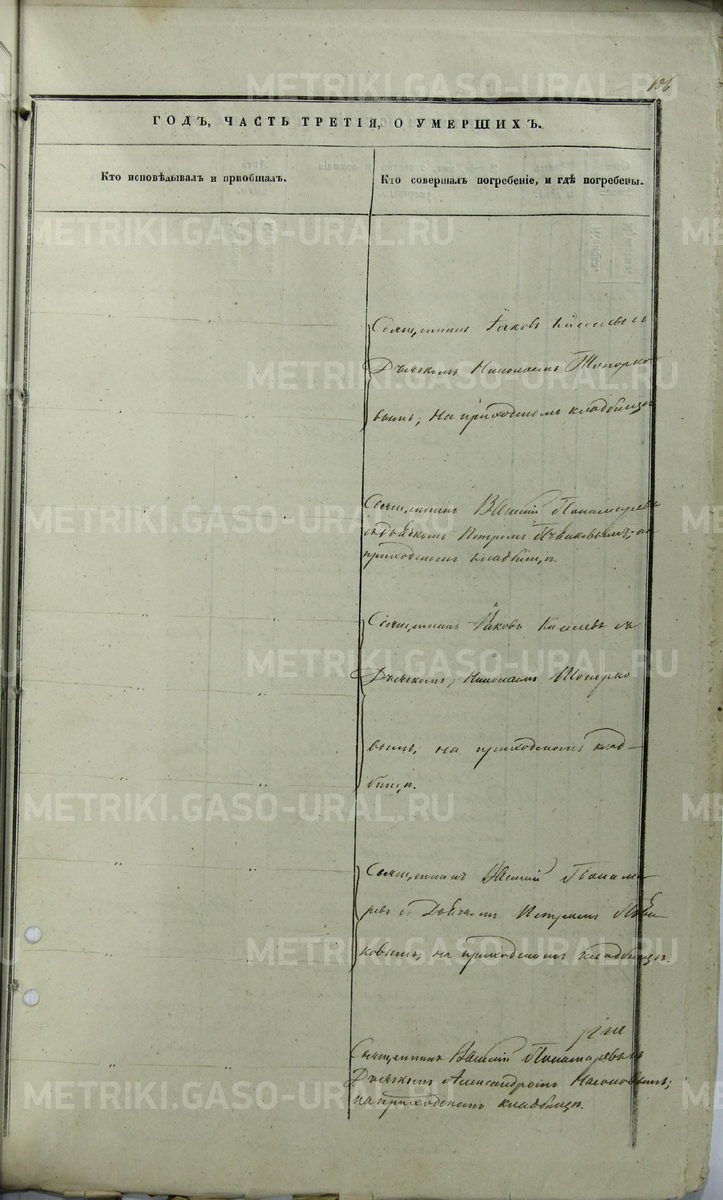 136
ГОДЪ, ЧАСТЬ ТРЕТІЯ, О УМЕРШИХЪ.
Кто исповѣдывалъ и пріобщалъ.
Кто совершалъ погребеніе, и гдѣ погребены.
Священникъ Іаковъ Киселевъ съ
Дьячкомъ Николаемъ Топорко
вымъ, на приходскомъ кладбищѣ
Священникъ Василій Пономаревъ
съ дьячкомъ Петромъ на
приходскомъ кладбищѣ.
Священникъ Іаковъ Киселевъ съ
Дьячкомъ, Николаемъ Топорко
вымъ, на приходскомъ клад-
бищѣ.
Священникъ Василій Понама
ревъ съ Дьячкомъ Петромъ
ковымъ, на приходскомъ кладбищѣ.
Священникъ Василій Понамаревъ съ
Дьячкомъ Александромъ
на приходскомъ кладбищѣ.
METRIKI.GASO-URAL.RU